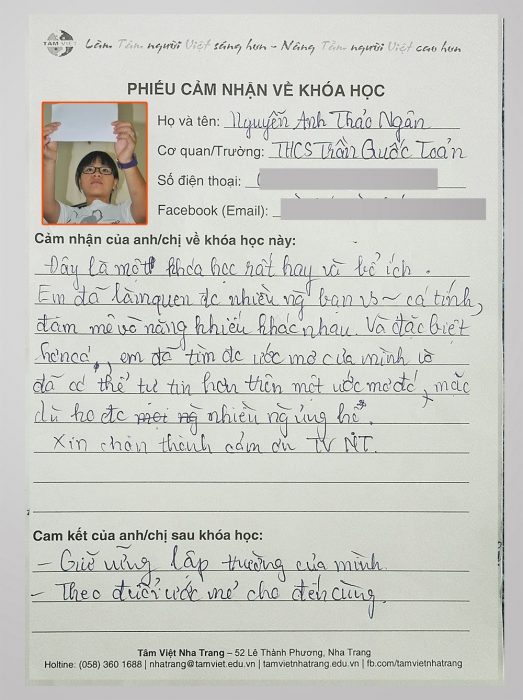 TÂM VIỆT
Làm Tâm người Việt sáng hơn - Nâng Tầm người Việt cao hơn
PHIẾU CẢM NHẬN VỀ KHÓA HỌC
Họ và tên: Nguyễn Anh Thảo Ngân
Cơ quan/Trường: THCS Trần Quốc Toản
Số điện thoại: (
Facebook (Email):
Cảm nhận của anh/chị về khóa học này:
Đây là một khóa học rất hay và bổ ích.
Em đã làm quen đc nhiều ng bạn vs ~ cá tính,
đam mê và năng khiếu khác nhau. Và đặc biệt
hơn cả, em đã tìm đc ước mơ của mình và
đã có thể tự tin hơn trên một ước mơ đó, mặc
dù ko đc nhiều ng ủng hộ.
Xin chân thành cảm ơn TV NT.
Cam kết của anh/chị sau khóa học:
- Giữ vững lập trường của mình.
- Theo đuổi ước mơ cho đến cùng.
Tâm Việt Nha Trang – 52 Lê Thành Phương, Nha Trang
Holtine: (058) 360 1688 | nhatrang@tamviet.edu.vn | tamvietnhatrang.edu.vn | fb.com/tamvietnhatrang